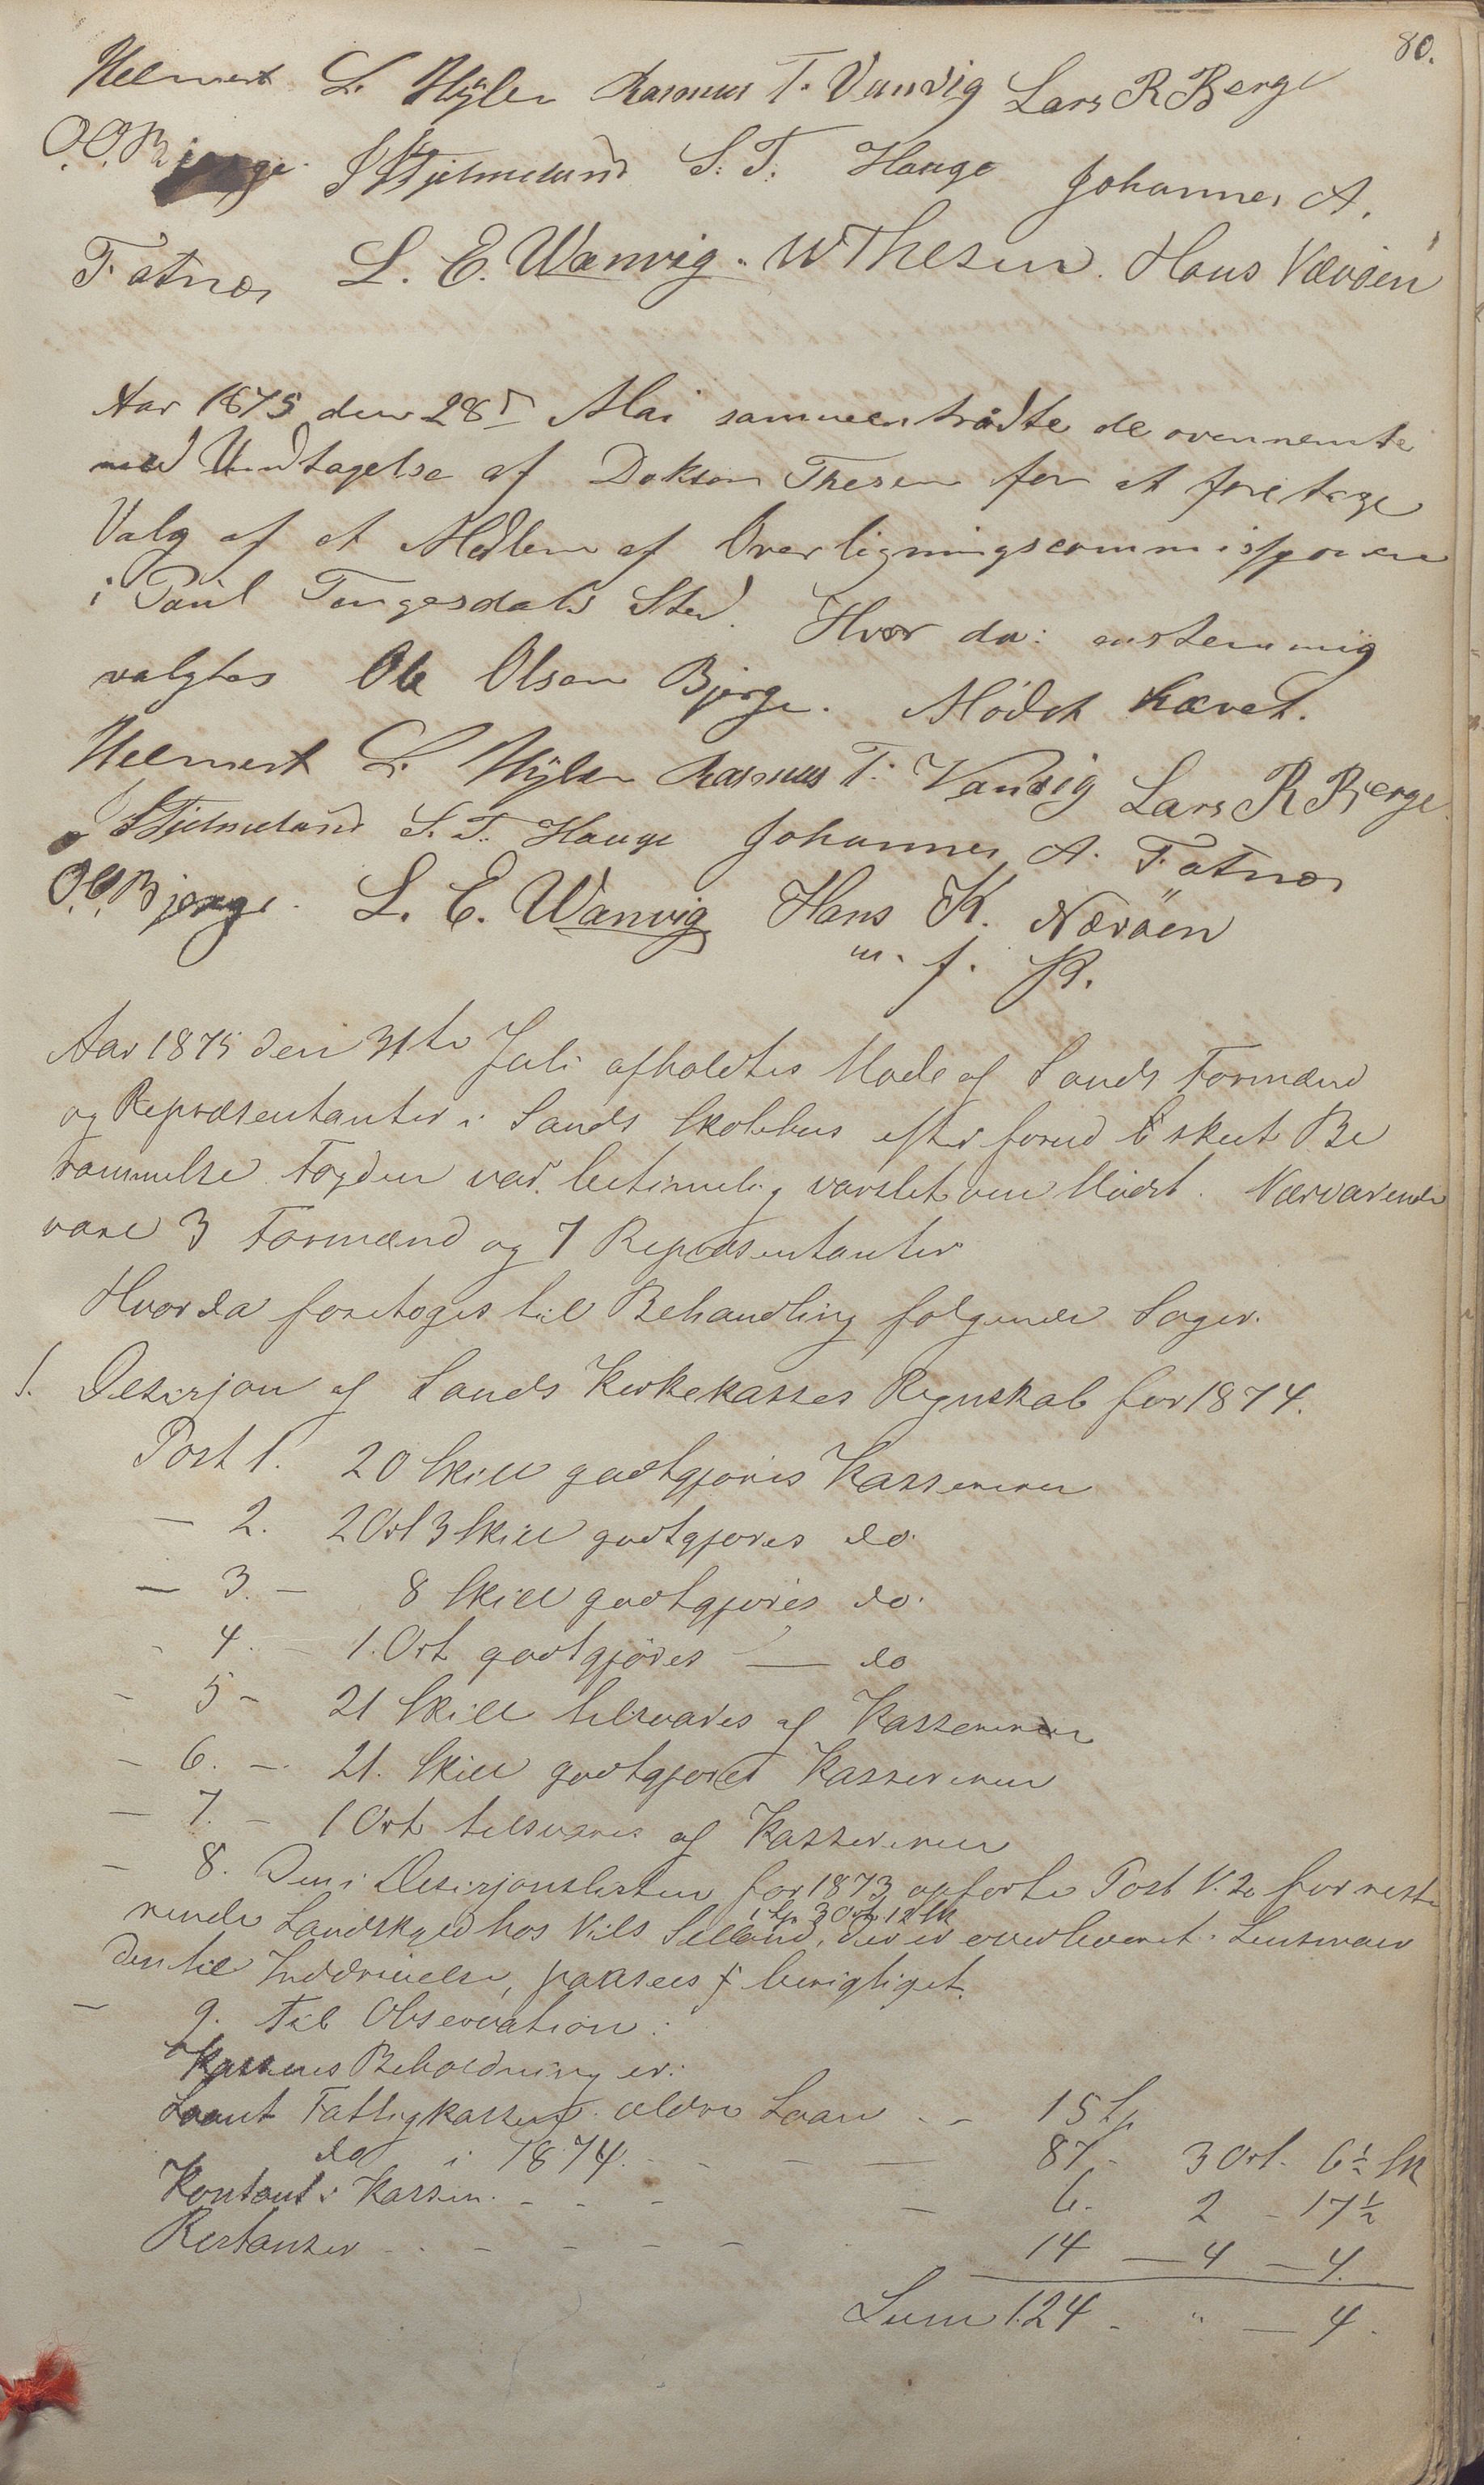 80.
Helmert L. Hylen Rasmus T. Vandvig Lars R Berge
O.O. Bjerge. Hjelmeland S. T. Hauge Johannes A.
Fatnes L. E. Wanvig. W Thesen. Hans Nærøen
Aar 1875 den 28de Mai sammentrådte de ovennemte
med Undtagelse af Doktor Thesen for at foretage
Valg af et Medlem af Overligningscommissjonen
i Paul Tengesdals Sted. Hvor da: enstemmig
valgtes Ole Olsen Bjerge. Mödet hævet.
Helmert L. Hylen Rasmus T. Vandvig Lars R Bjerge
Hjelmeland S. T. Hauge Johannes A. Fatnes
O.O. Bjerge. L. E. Wanvig Hans K. Næröen
m. f. P.
Aar 1875 den 31te Juli afholdtes Møde af Sands Formænd
og Repræsentanter i Sands Skolehus efter forud skeet Be
rammelse. Fogden var betimelig varslet om Mödet. Nærværende
vare 3 Formænd og 7 Repræsentanter
Hvor da foretoges til Behandling følgende Sager.
1. Desisjon af Sands Kirkekasses Regnskab for 1874.
Post 1. 20 Skill godtgjøres Kassereren
— 2. 2 Ort 3 Skill godtgjøres do.
— 3. — 8 Skill godtgjøres do.
- 4. — 1. Ort godtgjöres — do
- 5 - 21 Skill tilsvares af Kassereren
- 6. —. 21. Skill godtgjøres Kassereren
— 7. - 1 Ort tilsvares af Kassereren
— 8. Den i Desisjonslisten for 1873 opførte Post N. 20 for reste
1 Sp 3 Ort 12 Sk
rende Landskyld hos Nils Selland, der er overleveret Lensman
den til Inddrivelse, paasees berigtiget.
— 9. Til Observation:
Kassens Beholdning er:
Laant Fattigkassen ældre Laan - - 15 Sp
do i 1874. - - - — 87 - 3 Ort. 6½ Sk
Kontant i Kassen. - - - — 6. 2 - 17½
Restanser - - - - - - 14 — 4 — 4.
Sum 124 - " — 4.